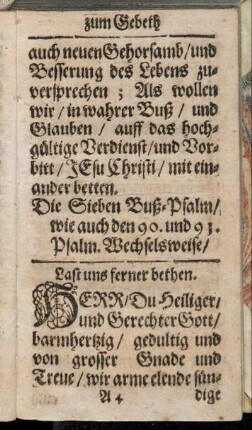 zum Gebetß
auch neuen Gehorsamb/und
Besserung des Lebens zu-
versprechen ; Als wollen
wir / in wahrer Buß / und
Glauben / auff das hoch-
gültige Verdienst/und Vor-
bitt / JEsu Christi / mit ein-
ander betten.
Die Sieben Buß-Psalm/
wie auch den 90. und 91.
Psalm. Wechselsweise/
Last uns ferner bethen.
HERR/Du Heiliger/
und Gerechter Gott/
barmhertzig / gedultig und
von grosser Gnade und
Treue / wir arme elende sün-
A 4 dige